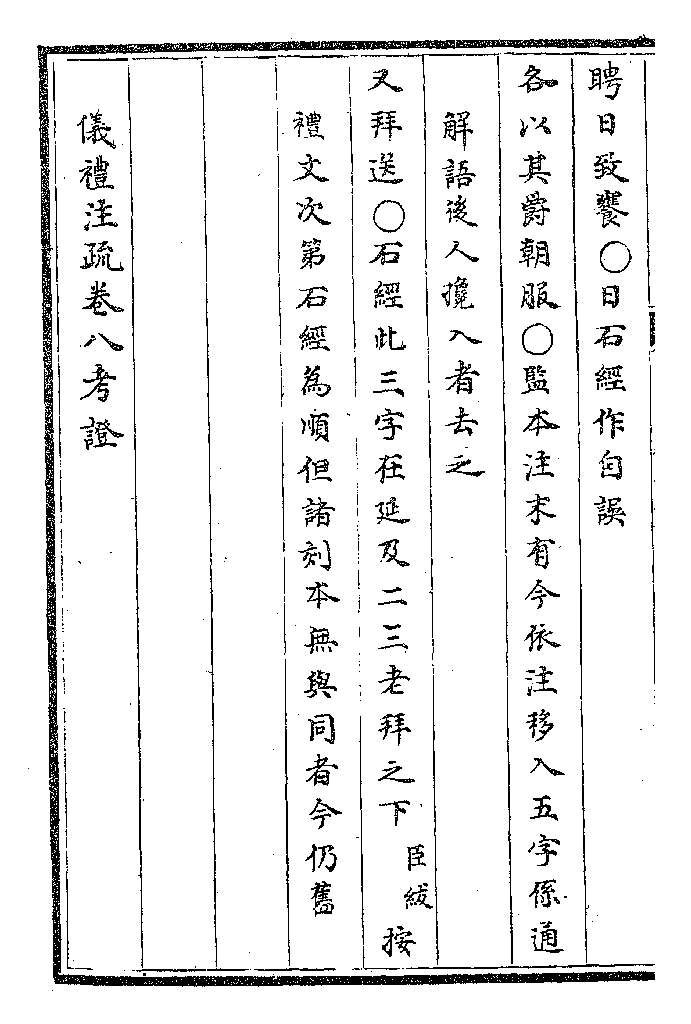 聘日致饔○日石經作自誤
各以其爵朝服○監本注末有今依注移入五字係通
解語後人攙入者去之
又拜送○石經此三字在延及二三老拜之下臣紱按
禮文次第石經為順但諸刻本無與同者今仍舊
儀禮注疏卷八考證